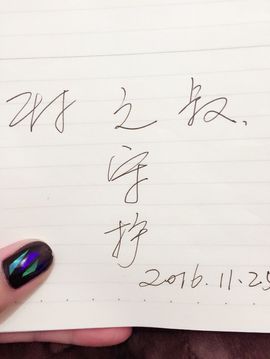 之 叔.
守
护
2016.11.25